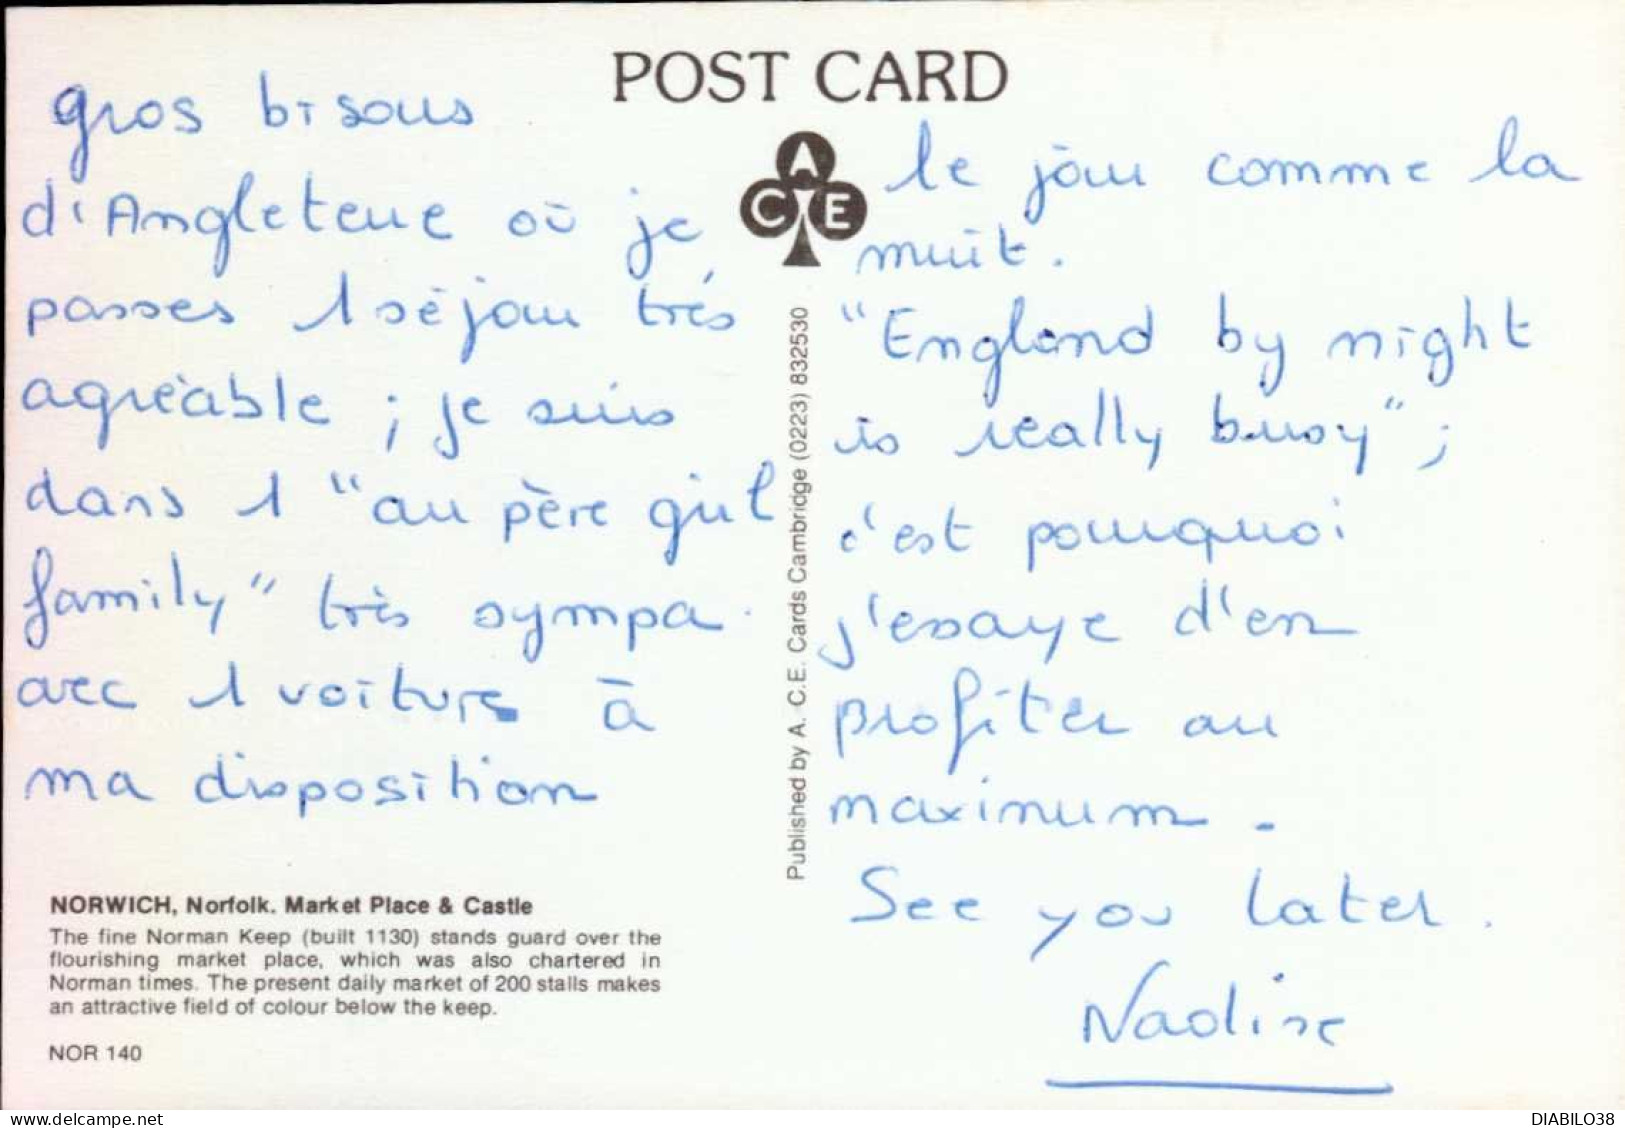 POST CARD
gros bisous
d'Angleterre où je
passes 1 séjour très
agréable ; je suis
dans 1 "au père girl
family" très sympa
avec 1 voiture à
ma disposition
NORWICH, Norfolk. Market Place & Castle
The fine Norman Keep (built 1130) stands guard over the
flourishing market place, which was also chartered in
Norman times. The present daily market of 200 stalls makes
an attractive field of colour below the keep.
NOR 140
A
C E
Published by A. C.E. Cards Cambridge (0223) 832530
le jour comme la
nuit.
"England by night
is really busy" ;
c'est pourquoi
j'essaye d'en
profiter au
maximum -
See you later.
Nadine
DIABILO38